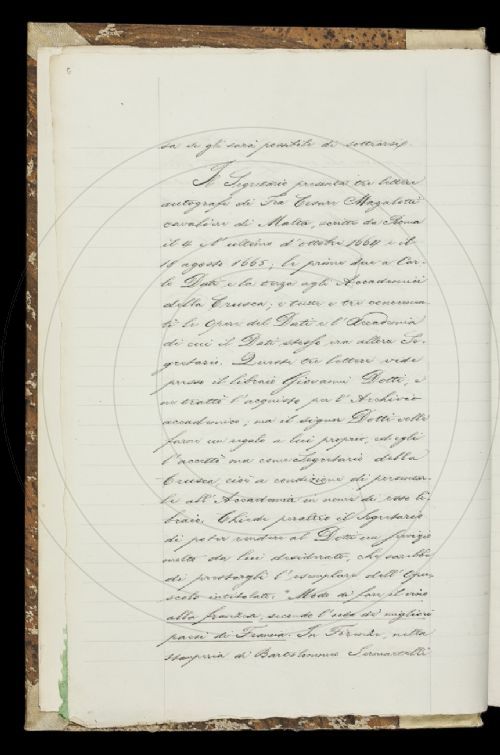 6
sa se gli sarà possibile di sottrarsi.
Il Segretario presenta tre lettere
autografe di Fra Cesare Magalotti
cavaliere di Malta, scritte da Roma
il 4 e l'ultimo d'ottobre 1664 e il
18 agosto 1665; le prime due a Car-
lo Dati e la terza agli Accademici
della Crusca; e tutte e tre concernen-
ti le opere del Dati e l'Accademia
di cui il Dati stesso era allora Se-
gretario. Queste tre lettere vide
presso il libraio Giovanni Dotti, e
ne trattò l'acquisto per l'Archivio
accademico; ma il signor Dotti volle
farne un regalo a lui proprio, ed egli
l'accettò ma come Segretario della
Crusca, cioè a condizione di presentar-
le all'Accademia in nome di esso li-
braio. Chiede peraltro il Segretario
di poter rendere al Dotti un servizio
molto da lui desiderato, che sarebbe
di prestargli l'esemplare dell'Opu-
scolo intitolato: "Modo di fare il vino
alla franzese, secondo l'uso di migliori
paesi di Francia. In Firenze, nella
stamperia di Bartolommeo Sermartelli